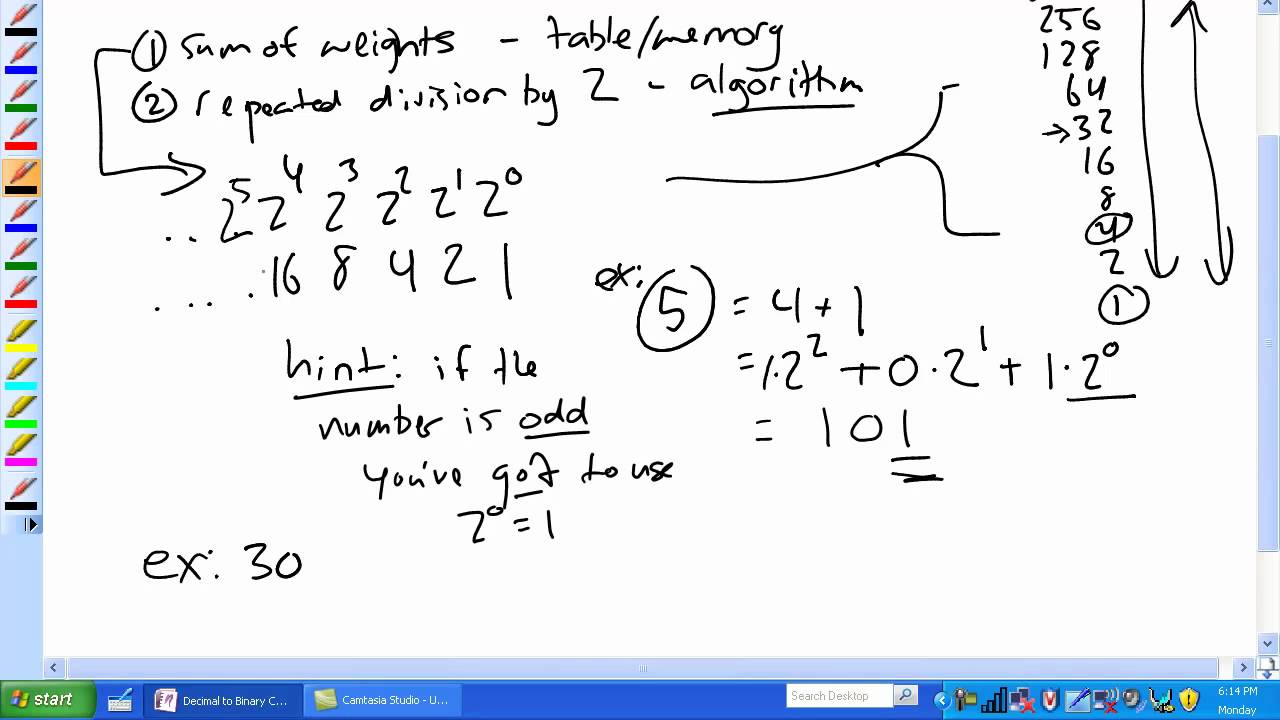 ① sum of weights - table/memory
② repeated division by 2 - algorithm
.. 2⁵ 2⁴ 2³ 2² 2¹ 2⁰
.... 16 8 4 2 1
hint: if the
number is odd
you've got to use
2⁰ = 1
ex: 30
ex: 5 = 4 + 1
= 1·2² + 0·2¹ + 1·2⁰
= 101
256
128
64
→32
16
8
4
2
1
start
Decimal to Binary C...
Camtasia Studio - U...
Search Desktop
6:14 PM
Monday